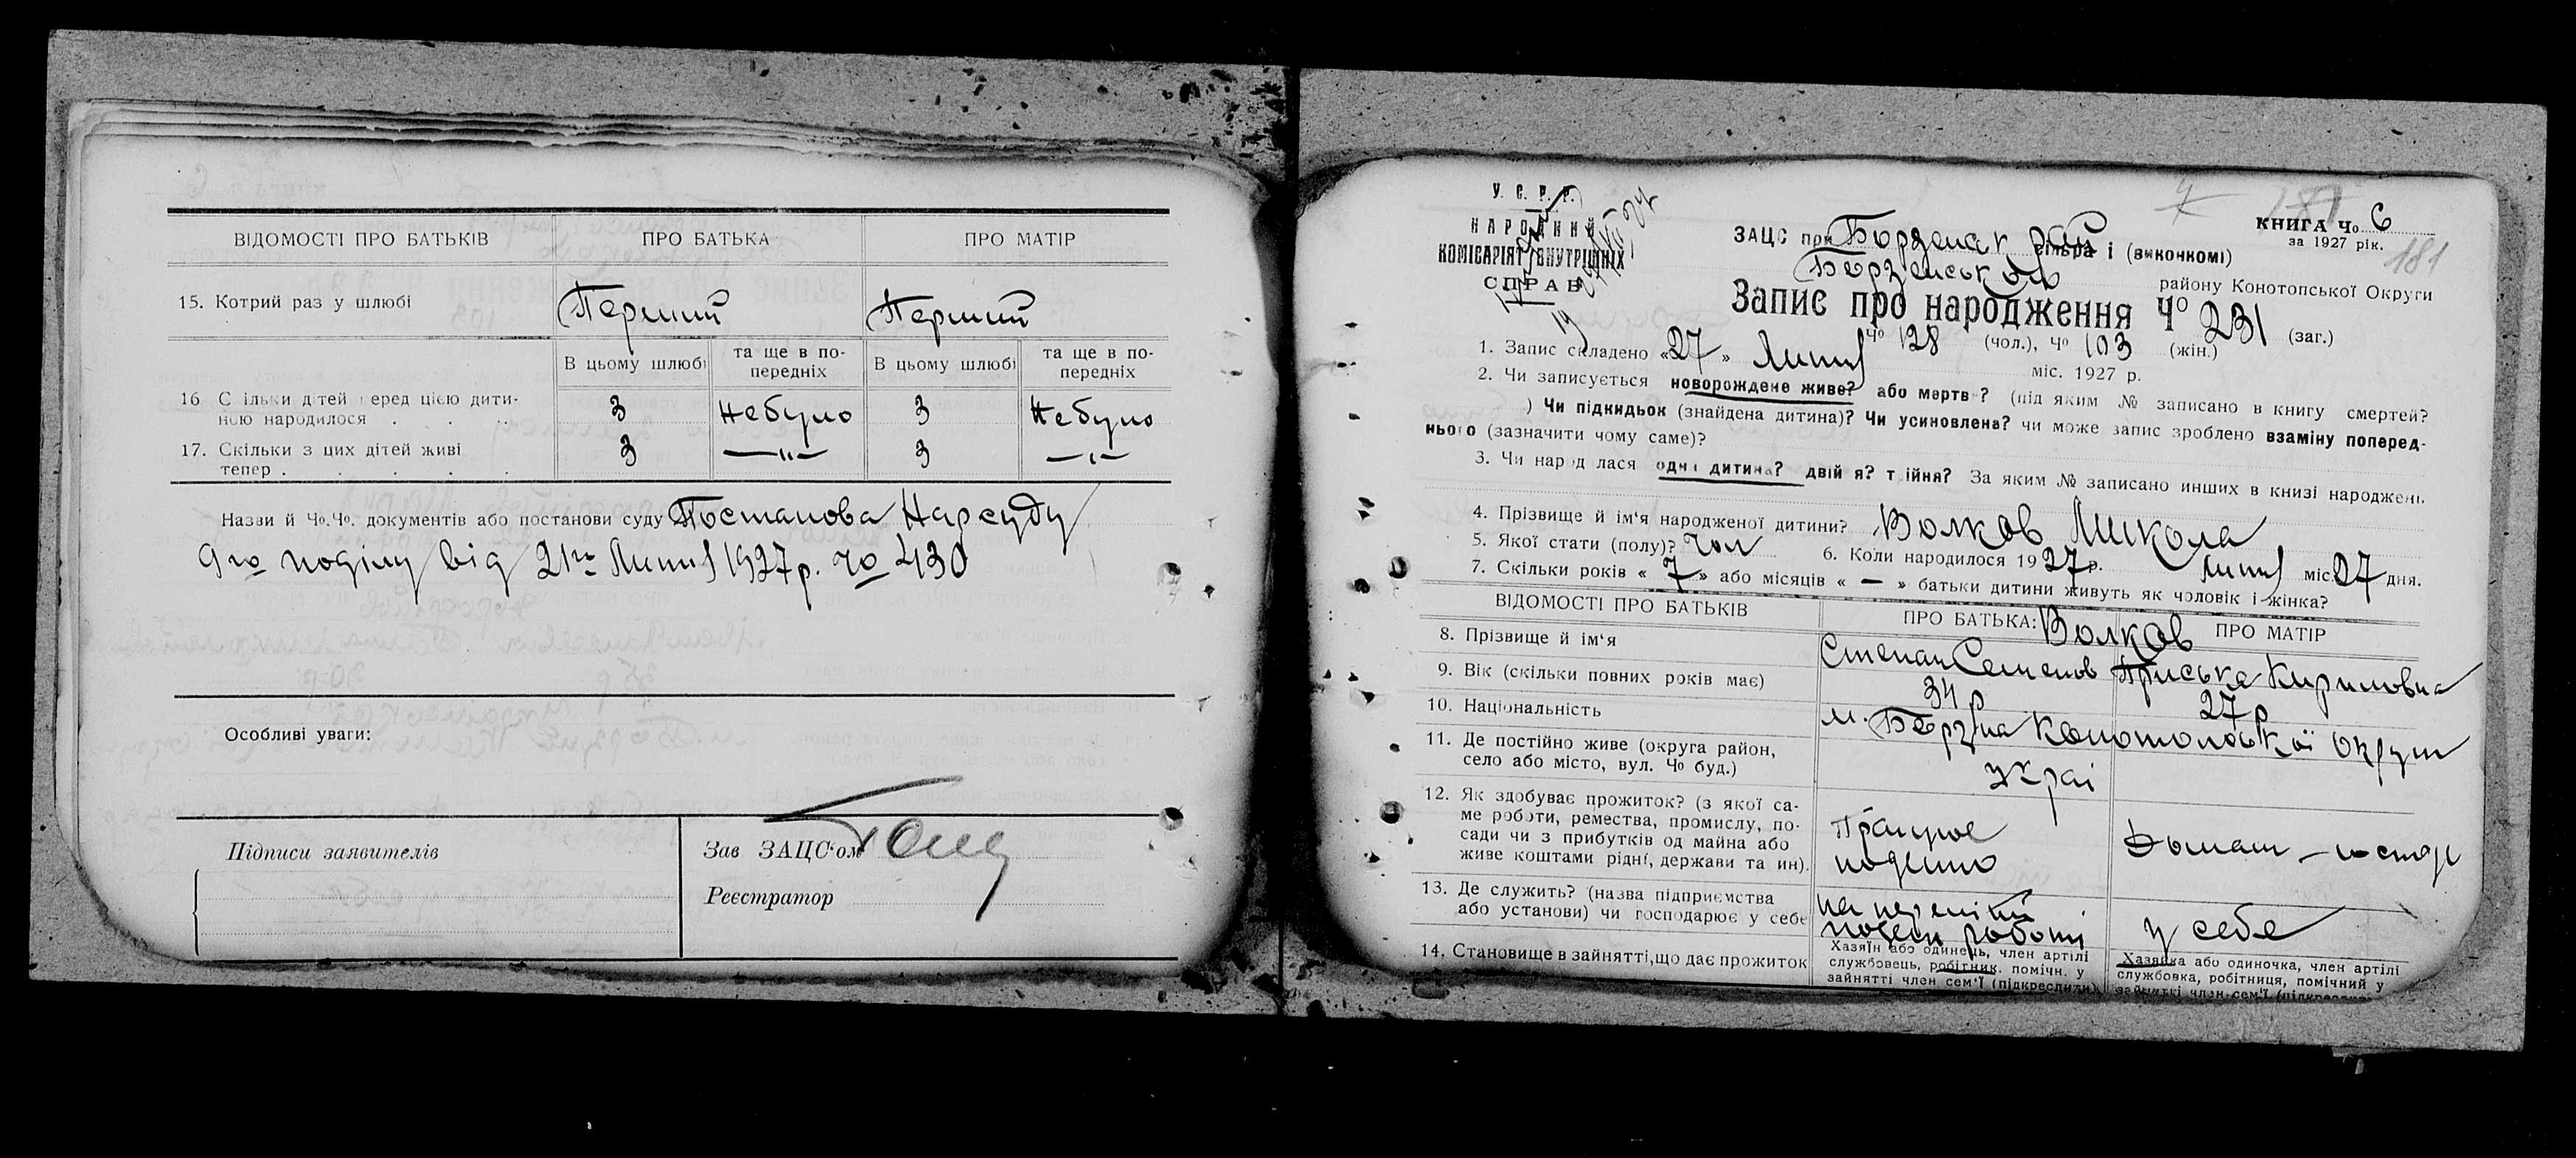 ВІДОМОСТІ ПРО БАТЬКІВ ПРО БАТЬКА ПРО МАТІР
15. Котрий раз у шлюбі Перший Перший
В цьому шлюбі та ще в по-передніх В цьому шлюбі та ще в по-передніх
16 С ільки дітей перед цією дити-
ною народилося . . . 3 Небуло 3 Небуло
17. Скільки з цих дітей живі
тепер . . . . . 3 —"— 3 —"—
Назви й Чо.Чо. документів або постанови суду Постанова Нарсуду
9го поділу від 21го Липня 1927 р. Чо 430
Особливі уваги:
Підписи заявителів
Зав ЗАЦС'ом
Реєстратор
У. С. Р. Р.
НАРОДНИЙ
КОМІСАРІЯТ ВНУТРІШНІХ
СПРАВ
КНИГА Чо 6
за 1927 рік.
181
ЗАЦС при рай сільра і (виконкомі)
Борзенського району Конотопської Округи
Запис про народження Чо 231 (заг.)
Чо 128 (чол.), Чо 103 (жін.)
1. Запис складено «27» Липня міс. 1927 р.
2. Чи записується новорождене живе? або мертве? (під яким № записано в книгу смертей?
) Чи підкидьок (знайдена дитина)? Чи усиновлена? чи може запис зроблено взаміну поперед-
нього (зазначити чому саме)?
3. Чи народ лася одна дитина? двій я? т ійня? За яким № записано инших в книзі народжень
4. Прізвище й ім'я народженої дитини? Волков Микола
5. Якої стати (полу)? Чол 6. Коли народилося 1927 р. Липня міс. 27 дня.
7. Скільки років « 7 » або місяців « — » батьки дитини живуть як чоловік і жінка?
ВІДОМОСТІ ПРО БАТЬКІВ ПРО БАТЬКА: ПРО МАТІР
Волков
8. Прізвище й ім'я Степан Семенов Приська Кириловна
9. Вік (скільки повних років має) 34 р 27 р
10. Національність
м. Борзна Конотопської округи
11. Де постійно живе (округа район,
село або місто, вул. Чо буд.)
Украі
12. Як здобуває прожиток? (з якої са-
ме роботи, ремества, промислу, по-
сади чи з прибутків од майна або
живе коштами рідні, держави та ин).
Працює
поденно
13. Де служить? (назва підприємства
або установи) чи господарює у себе
роботі
у себе
14. Становище в зайнятті, що дає прожиток
Хазяїн або одинець, член артілі
службовець, робітник. помічн. у
зайнятті член сем'ї (підкреслити)
Хазяйка або одиночка, член артілі
службовка, робітниця, помічний у
зайнятті член сем'ї